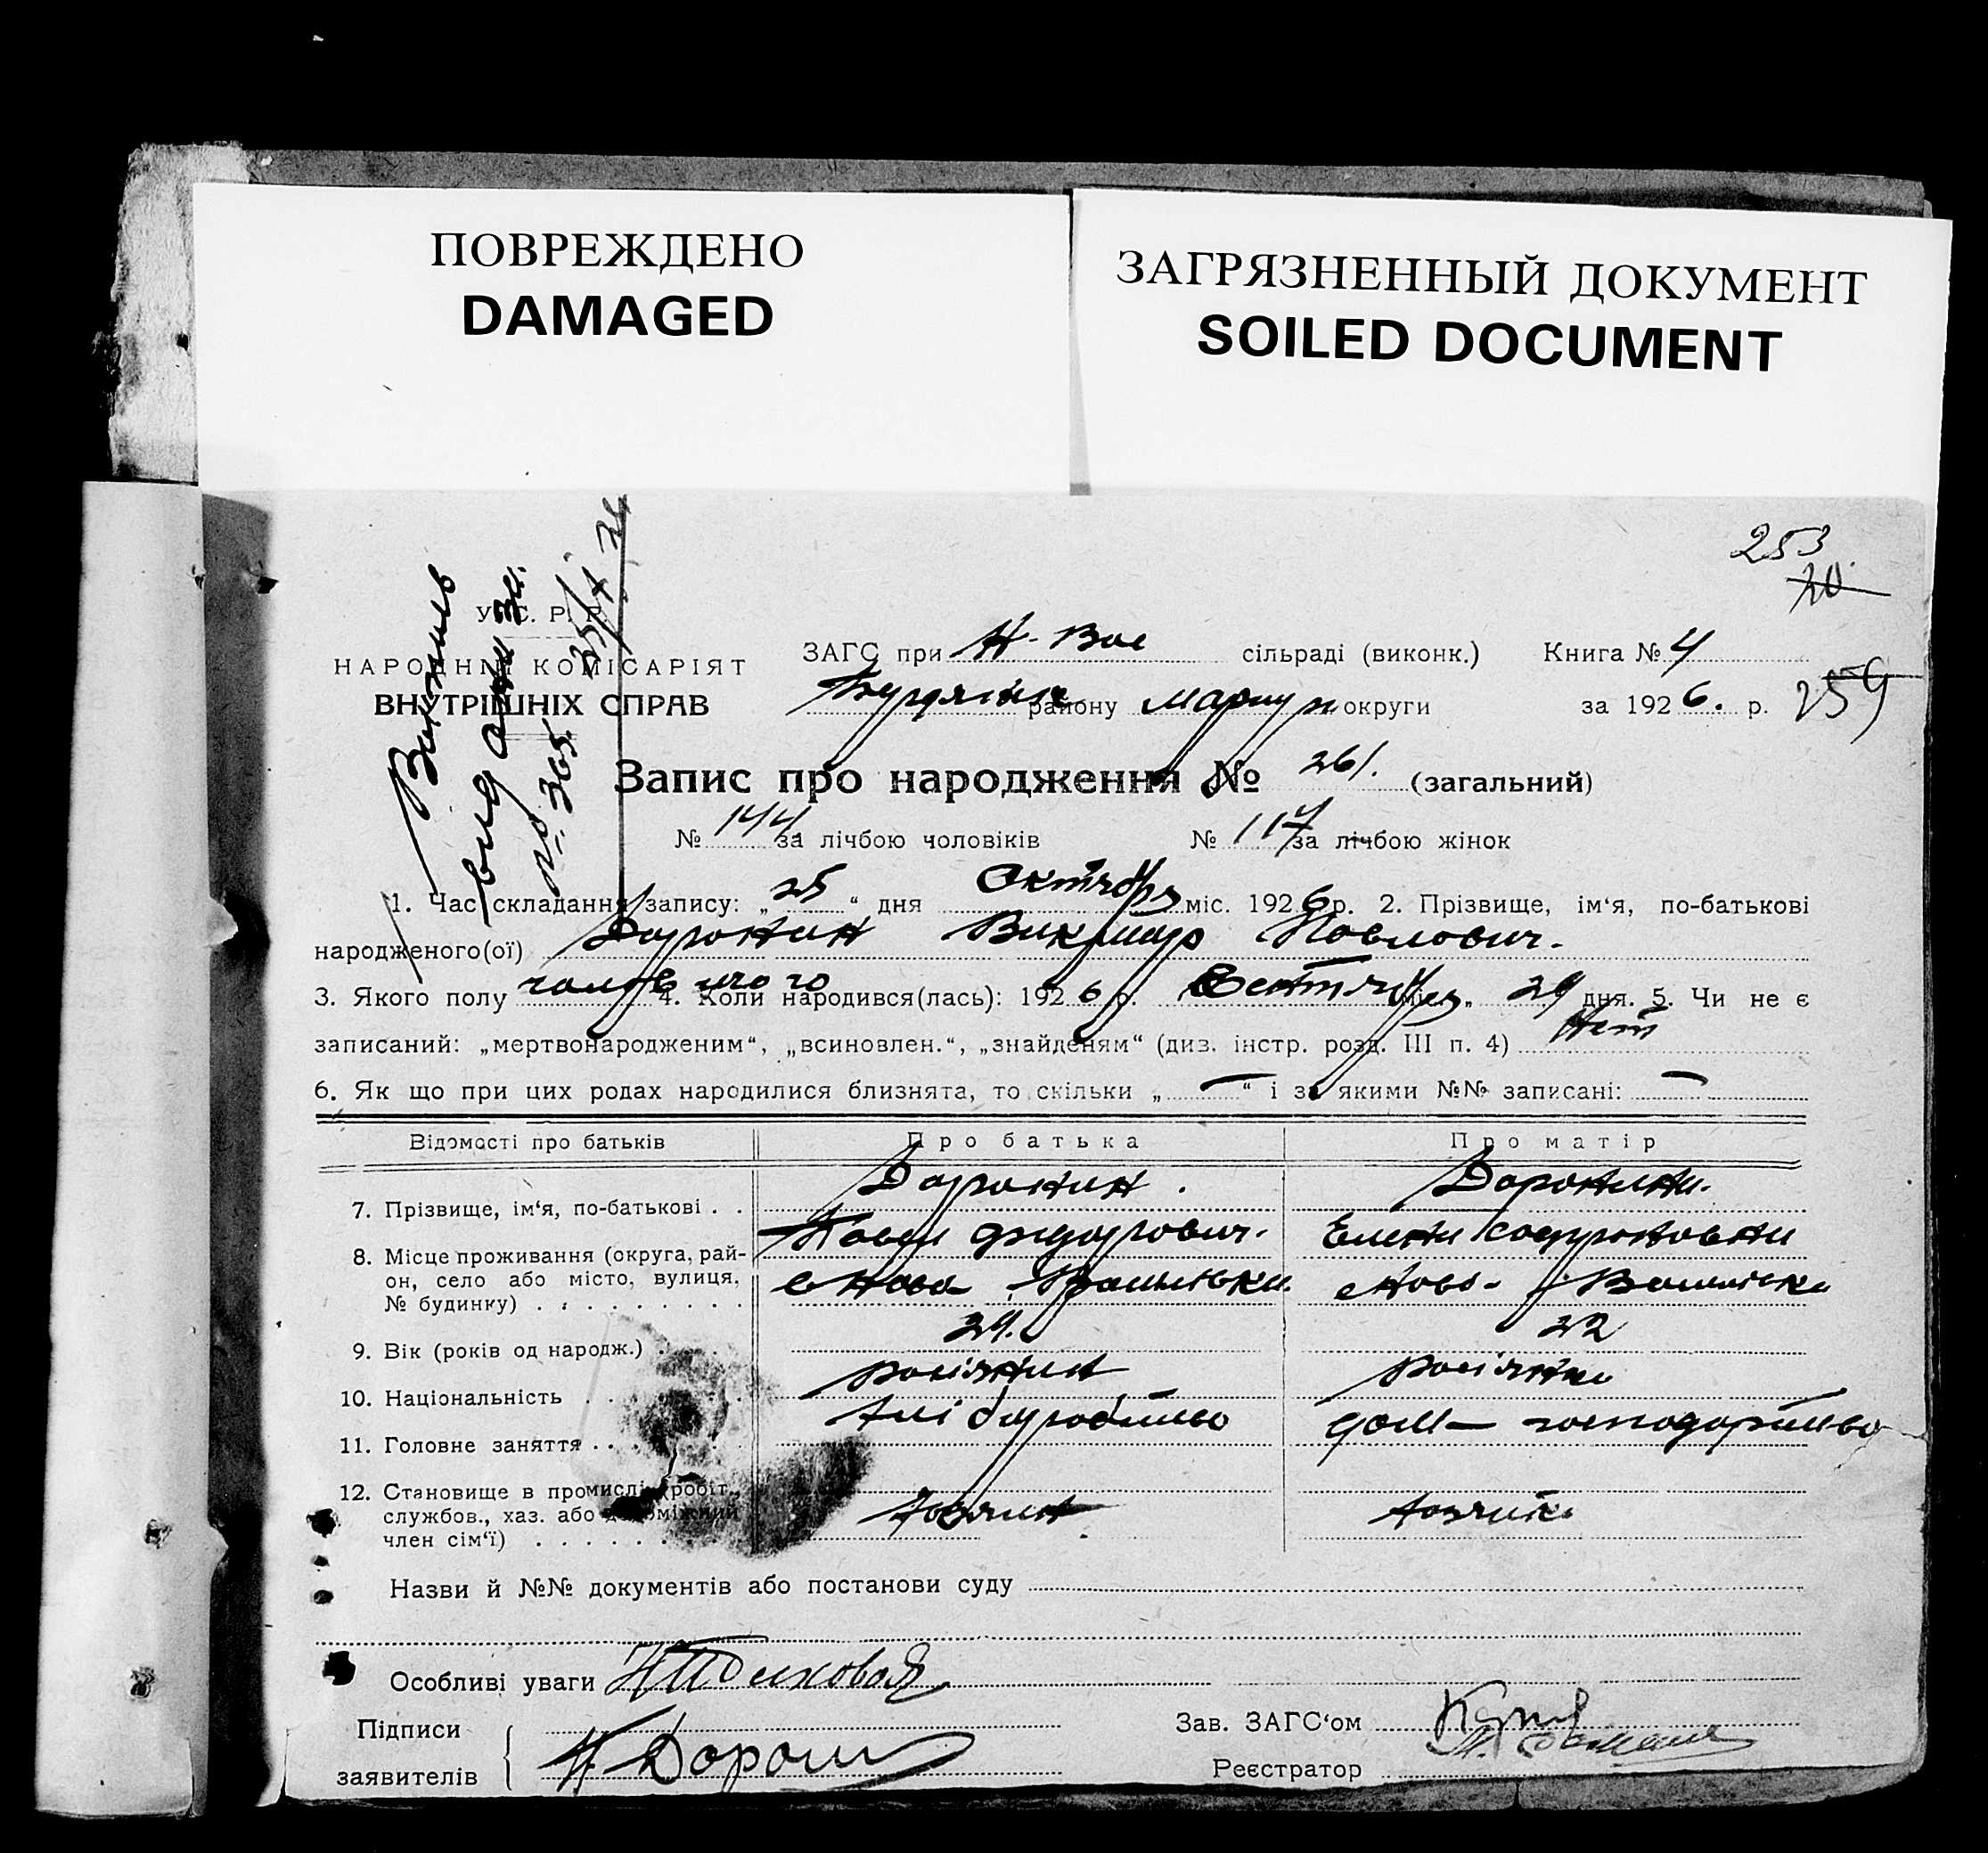 ПОВРЕЖДЕНО
DAMAGED
ЗАГРЯЗНЕННЫЙ ДОКУМЕНТ
SOILED DOCUMENT
253
20
У. С. Р. Р.
НАРОДНІЙ КОМІСАРІЯТ
ВНУТРІШНІХ СПРАВ
№ 365.
ЗАГС при Н-Вас сільраді (виконк.) Книга № 4
району Мариуп округи за 1926. р. 259
Запис про народження № 261. (загальний)
№ 144 за лічбою чоловіків № 117 за лічбою жінок
1. Час складання запису: „25“ дня Октября міс. 1926 р. 2. Прізвище, ім‘я, по-батькові
народженого(ої) Доронин Виктор Павлович.
3. Якого полу 4. Коли народився(лась): 1926 р. Сентября „29 дня. 5. Чи не є
записаний: „мертвонародженим“, „всиновлен.“, „знайденям“ (диз. інстр. розд. III п. 4) Нет
6. Як що при цих родах народилися близнята, то скільки „ — “ і за якими №№ записані: —
Відомості про батьків Про батька Про матір
7. Прізвище, ім‘я, по-батькові . . Доронин . Доронина.
Павел Федорович. Елена Софроновна
8. Місце проживання (округа, рай-
он, село або місто, вулиця, с Ново-Васильевка. Ново-Васильевка
№ будинку) . . . . . . . . .
9. Вік (років од народж.) . 29. 22
10. Національність . . росіянин росіянка
11. Головне заняття . . . хліборобство дом— господарство
12. Становище в промислі (робіт.,
службов., хаз. або допоміжний Хозяин хозяйка
член сім‘ї) . . . . . .
Назви й №№ документів або постанови суду
Особливі уваги
Підписи
заявителів
Зав. ЗАГС‘ом
Реєстратор